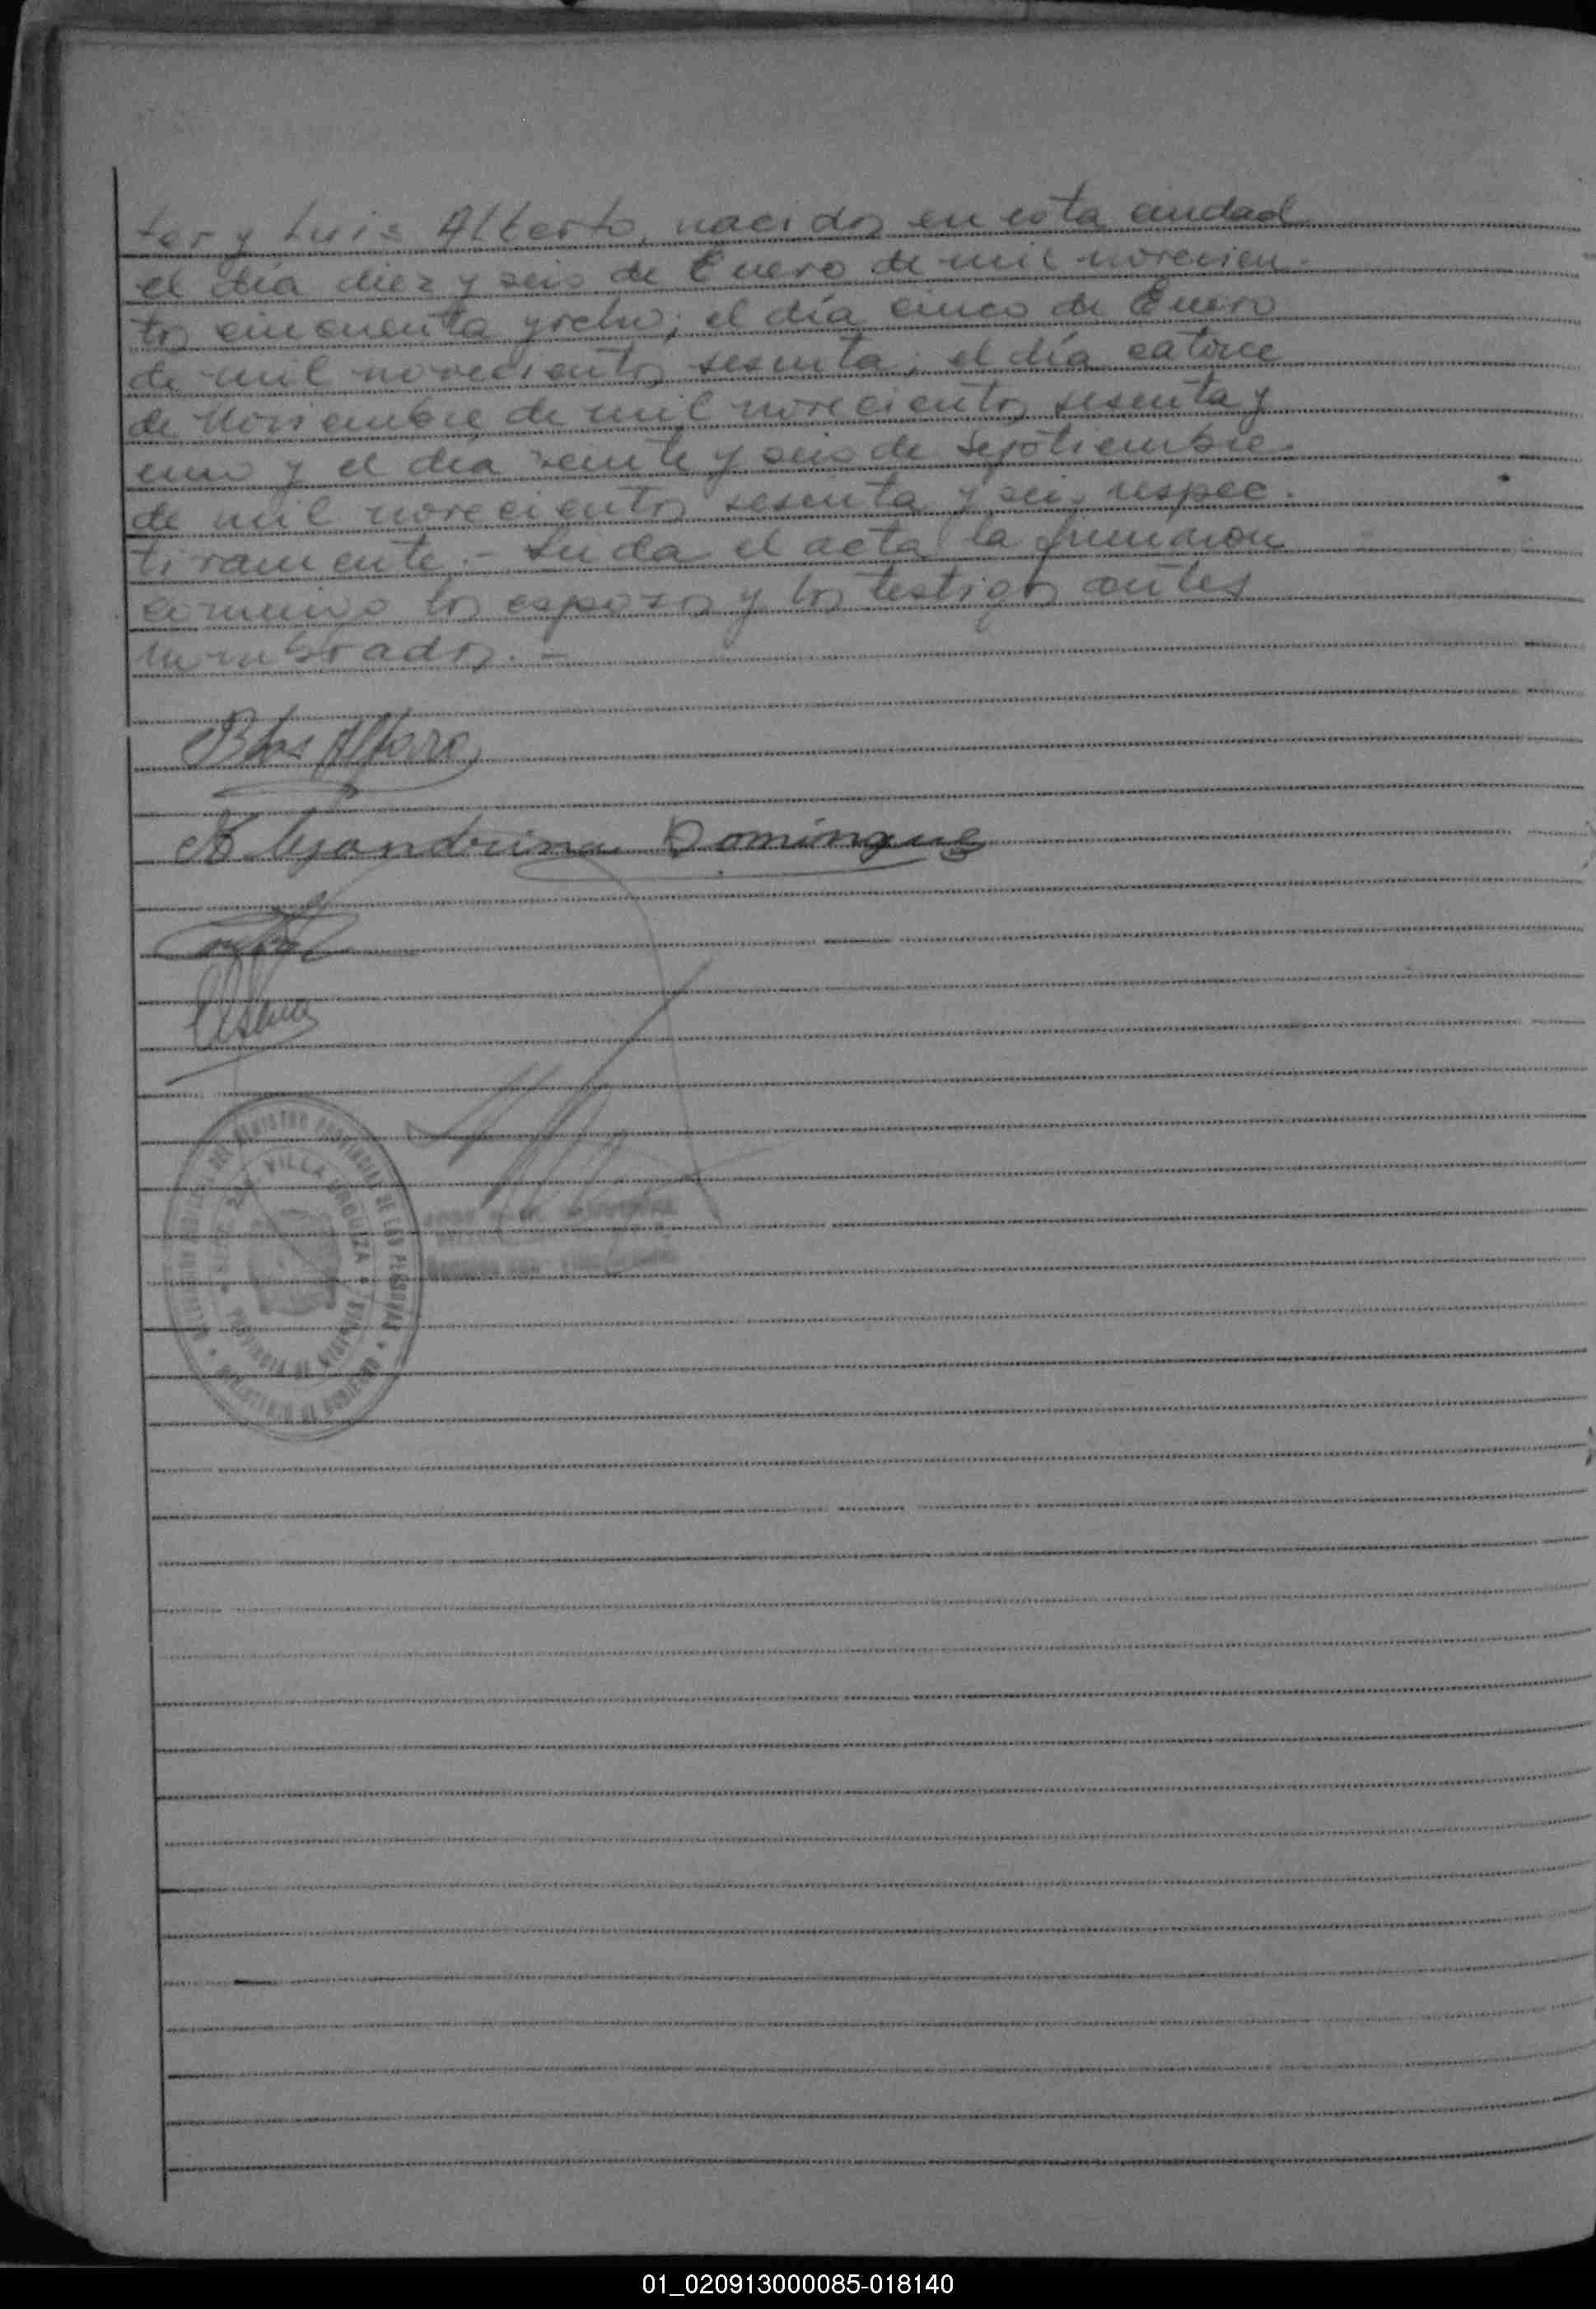 ter y Luis Alberto, nacidos en esta ciudad
el día diez y seis de Enero de mil novecien-
tos cincuenta y ocho; el día cinco de Enero
de mil novecientos sesenta; el día catorce
de Noviembre de mil novecientos sesenta y
uno y el día veinte y seis de Septiembre
de mil novecientos sesenta y seis respec-
tivamente.- Leida el acta la firmaron
conmigo los esposos y los testigos antes
nombrados.-
Blas Alfaro
Alejandrina Domingues
REGISTRO PROVINCIAL DE LAS PERSONAS
VILLA URQUIZA
PROVINCIA DE MISIONES
MINISTERIO DE GOBIERNO
01_020913000085-018140